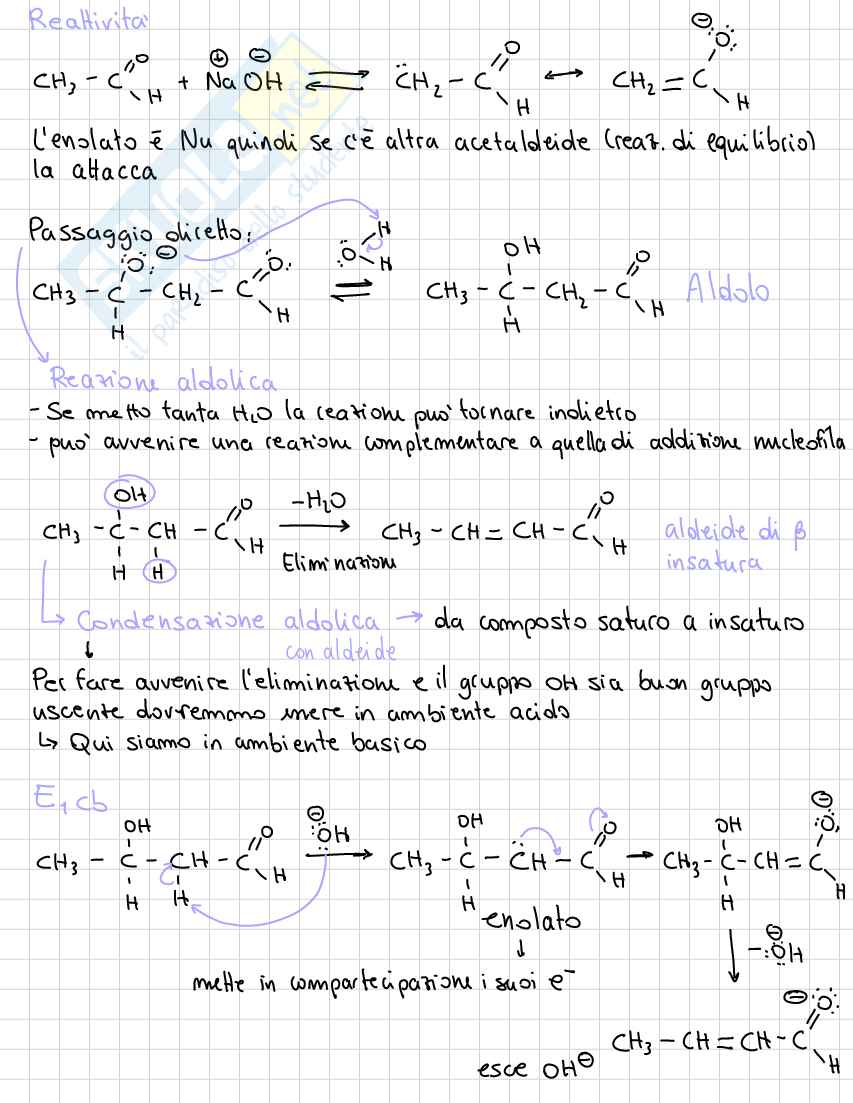 Reattività
CH3 - C O H + Na⊕ OH⊖ ⇌ C̈H2 - C O H ↔ CH2 = C O⊖ H
L'enolato è Nu quindi se c'è altra acetaldeide (reaz. di equilibrio)
la attacca
Passaggio diretto:
CH3 - C - CH2 - C O⊖ H O H ⇌ H O H CH3 - C - CH2 - C OH H O H Aldolo
Reazione aldolica
- Se metto tanta H2O la reazione può tornare indietro
- può avvenire una reazione complementare a quella di addizione nucleofila
CH3 - C - CH - C OH H H O H -H2O → CH3 - CH = CH - C O H aldeide di β
Eliminazione insatura
↳ Condensazione aldolica → da composto saturo a insaturo
con aldeide
Per fare avvenire l'eliminazione e il gruppo OH sia buon gruppo
uscente dovremmo essere in ambiente acido
↳ Qui siamo in ambiente basico
E1cb
CH3 - C - CH - C OH H H O H ⊖OH → CH3 - C - C̈H - C OH H O H → CH3 - C - CH = C OH H O⊖ H
enolato
- ⊖OH
mette in compartecipazione i suoi e-
CH3 - CH = CH - C ⊖O H
esce OH⊖